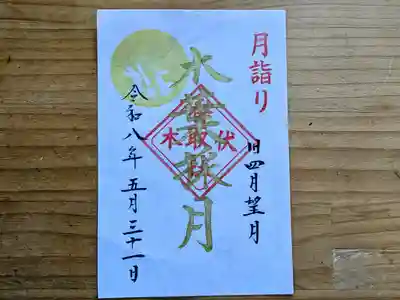 月詣り
旧四月望月
水 月
伏取木
令和八年五月三十一日